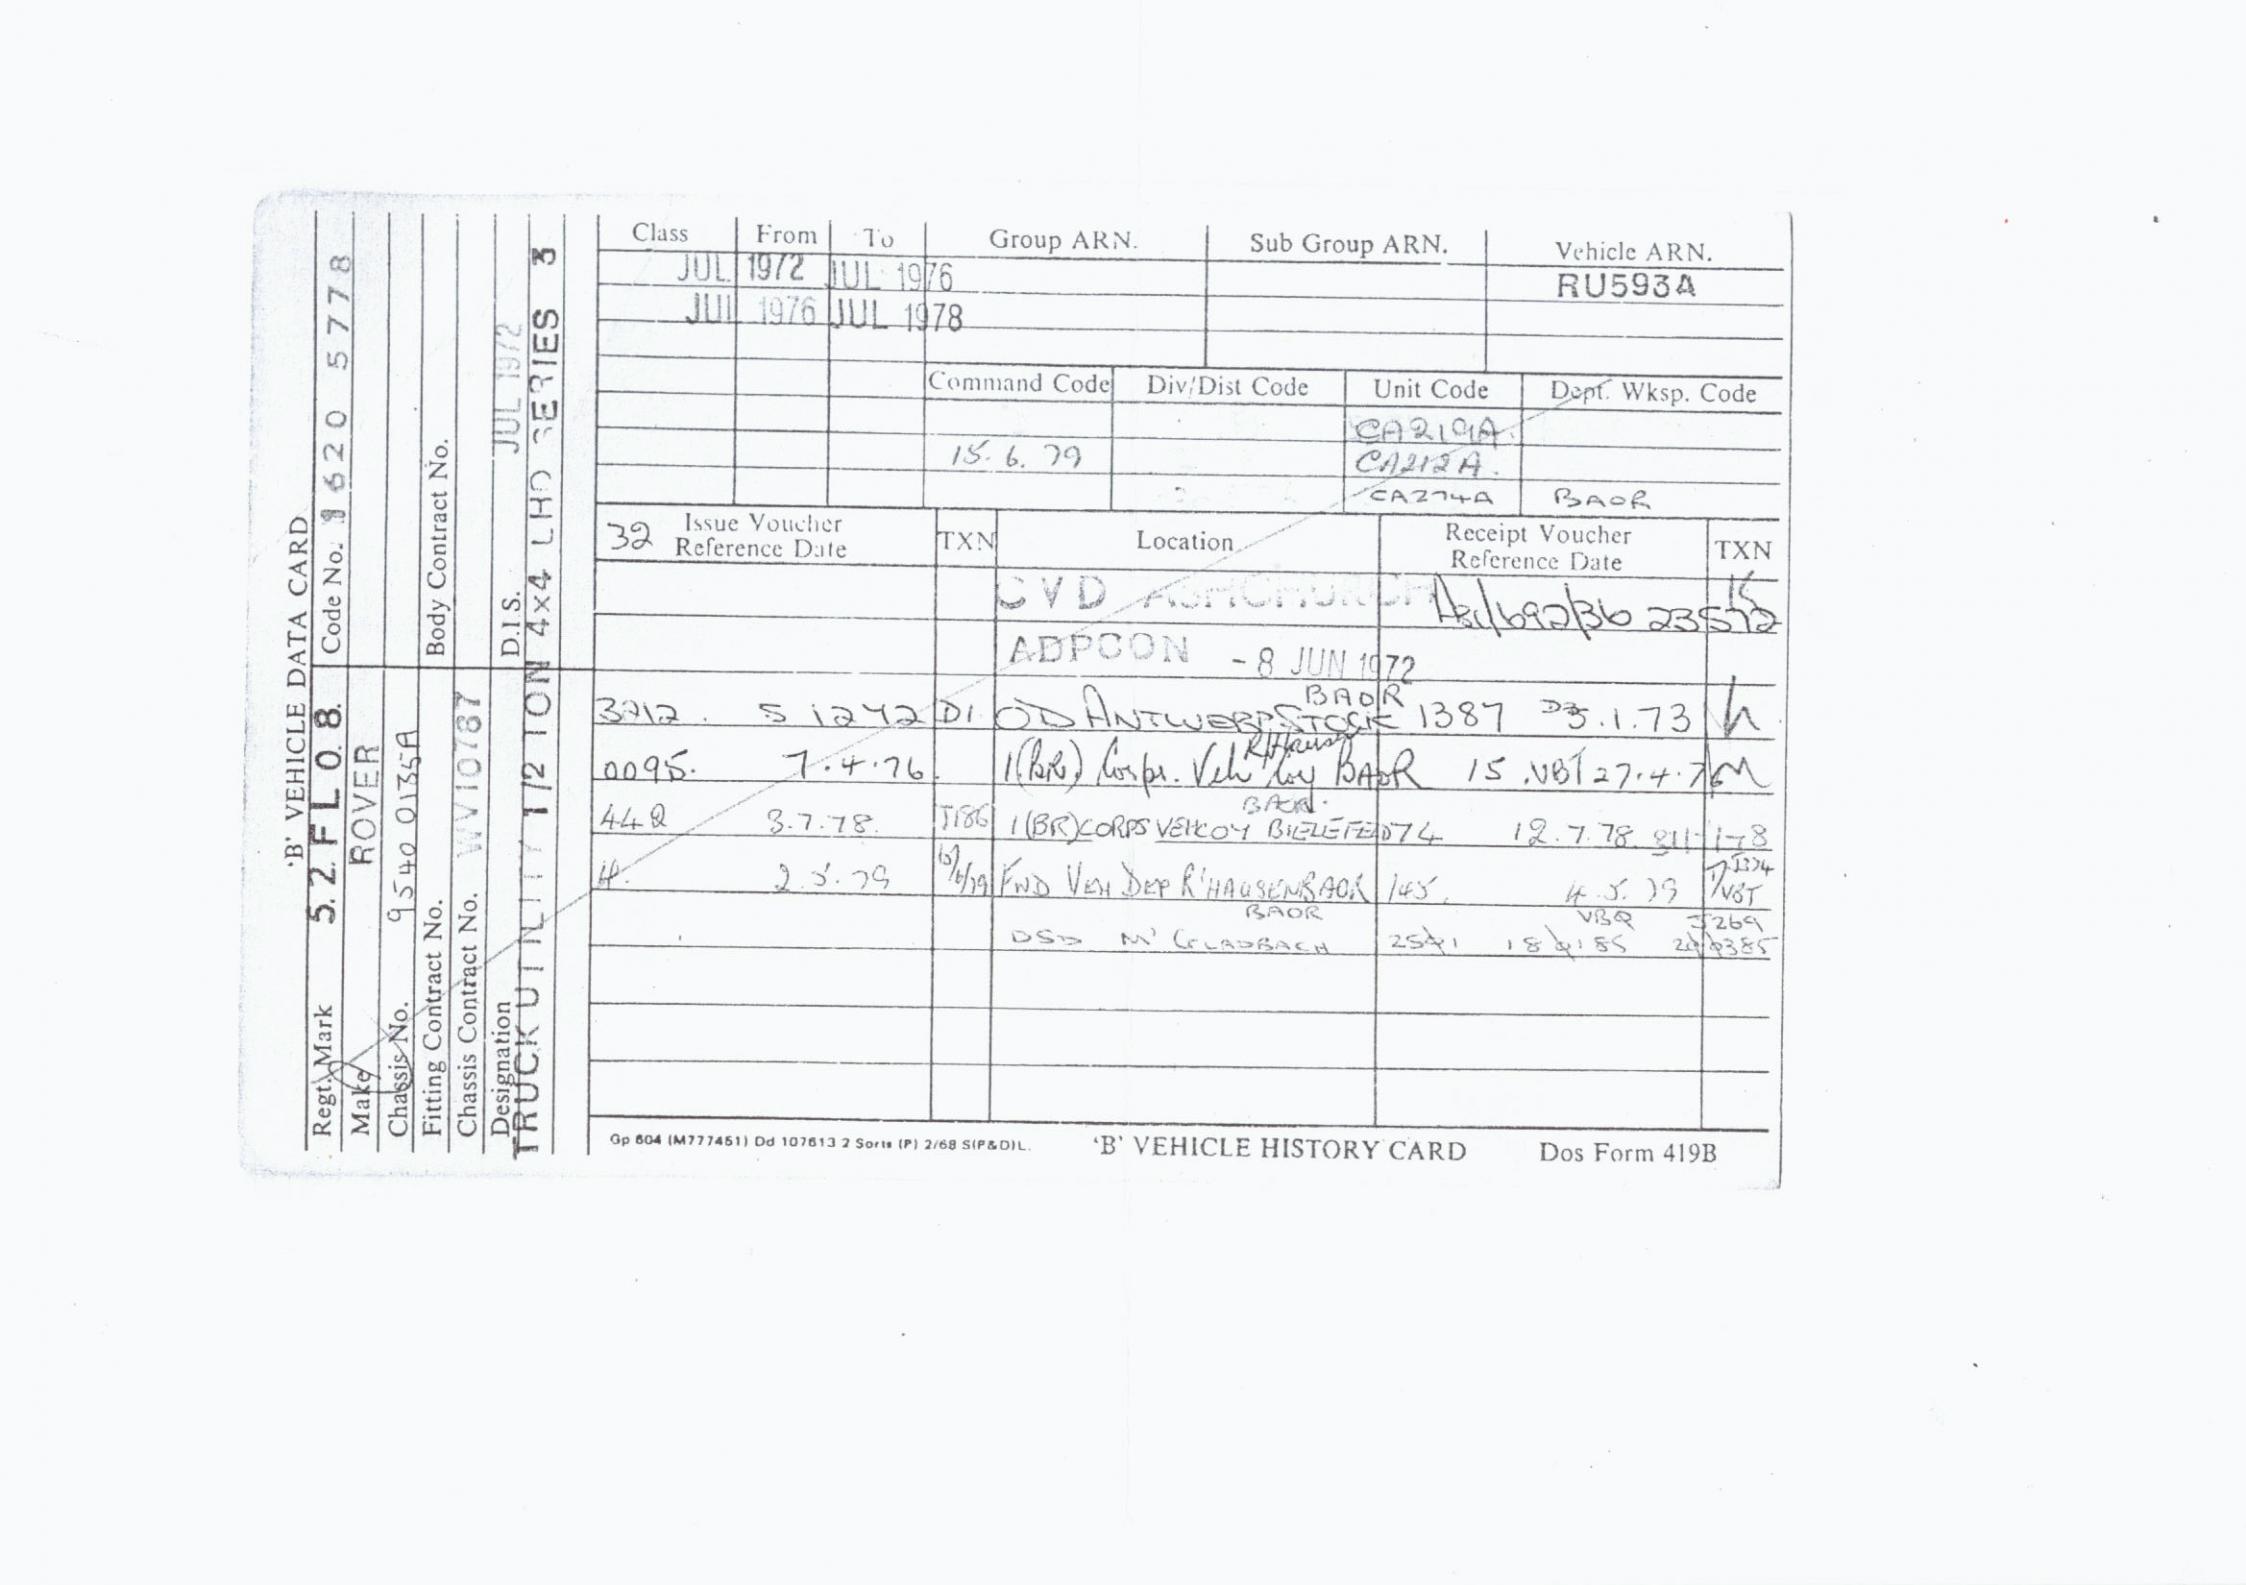 'B' VEHICLE DATA CARD
Regt. Mark 52 FL 08 Code No. 1620 5778
Make ROVER
Chassis No. 954 00135A
Fitting Contract No. Body Contract No.
Chassis Contract No. WV10787
Designation D.I.S. JUL 1972
TRUCK UTILITY 1/2 TON 4x4 LHD SERIES 3
Class From To Group ARN. Sub Group ARN. Vehicle ARN.
JUL 1972 JUL 1976 RU593A
JUL 1976 JUL 1978
Command Code Div/Dist Code Unit Code Dept. Wksp. Code
CA219A.
15.6.79 CA212A.
CA274A BAOR
32 Issue Voucher Reference Date TXN Location Receipt Voucher Reference Date TXN
CVD ASHCHURCH /692/36 23572
ADPCON -8 JUN 1972
BAOR
3212. 51272 D1. OD ANTWERP STOCK 1387 3.1.73
R'Hausen
0095. 7.4.76. 1(BR) Corps. Veh Coy BAOR 15 .VBT 27.4.76
BAOR.
442 3.7.78. J186 1(BR)CORPS VEHCOY BIELEFELD 74 12.7.78.
4. 2.5.79 FWD VEH DEP R'HAUSEN BAOR 145. 4.5.79 VBT
BAOR VBQ J269
DSD M'GLADBACH
Gp 604 (M777451) Dd 107613 2 Sorts (P) 2/68 S(P&D)L. 'B' VEHICLE HISTORY CARD Dos Form 419B